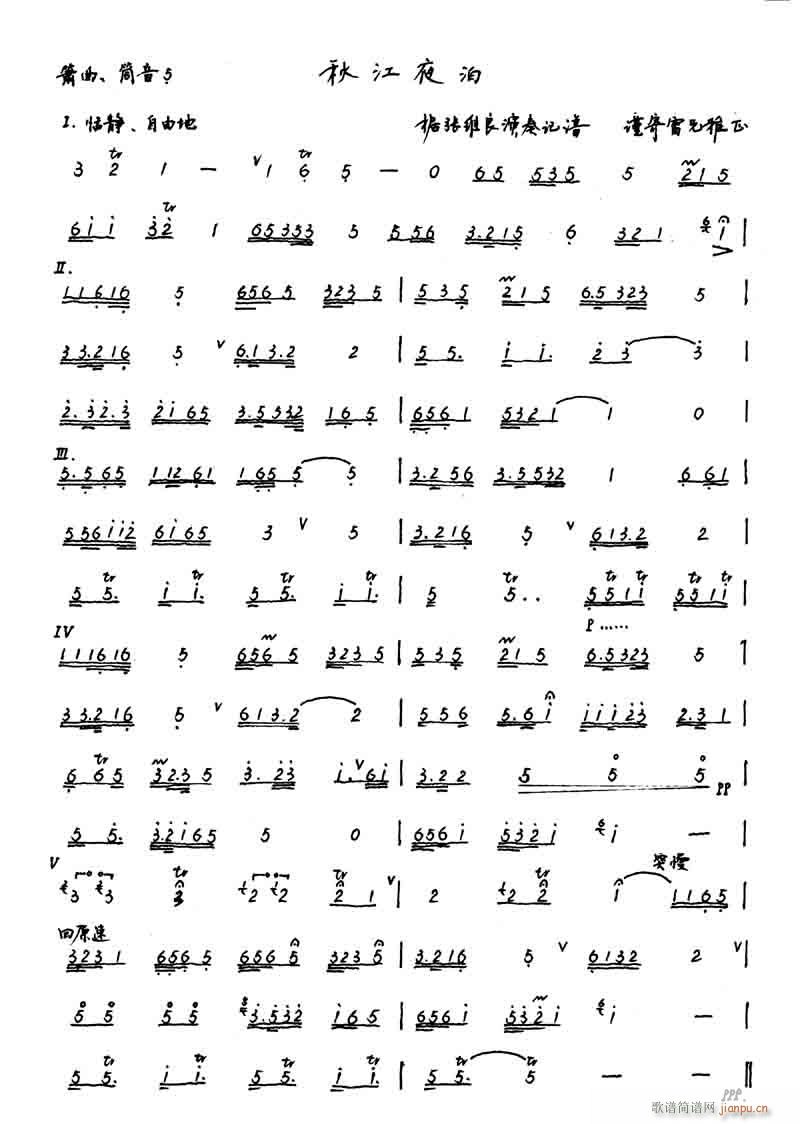 秋江夜泊
箫曲、筒音5
I. 恬静、自由地 据张维良演奏记谱 谨寄雷兄雅正
3 2 1 — V 1 6 5 — 0 65 535 5 215
tr tr
6ii 32 1 65353 5 556 3.215 6 321 i |
tr
II.
111616 5 6565 3235 | 535 215 6.5323 5 |
33.216 5 V 6.13.2 2 | 55. ii. 23 3 |
2.32.3 2165 3.5332 165 | 6561 5321 1 0 |
III.
5.565 11261 1655 5 | 3.256 3.5532 1 661 |
556ii2 6i65 3 V 5 | 3.216 5 V 613.2 2 |
tr tr tr tr tr tr tr tr tr
55. ii. 55. ii. | 5 5.. 551i 551i
IV P……
111616 5 6565 3235 | 535 215 6.5323 5 |
33.216 5 V 613.2 2 | 556 5.6i iiii23 2.31 |
tr V
665 32.35 3.23 i.6i | 3.22 5 5 5 |
pp
55. 3.2i65 5 0 | 656i 532i i — |
V 突慢
tr tr tr
3 3 3 2 2 2 1 V | 2 2 2 i 1165 |
回原速
3231 6565 6565 3235 | 3.216 5 V 6132 2 V |
55 55 3.532 i65 | 656i 532i i — |
tr tr tr tr tr tr
55. ii. 55. ii. | 55. 5 — — ‖
ppp.
歌谱简谱网 jianpu.cn